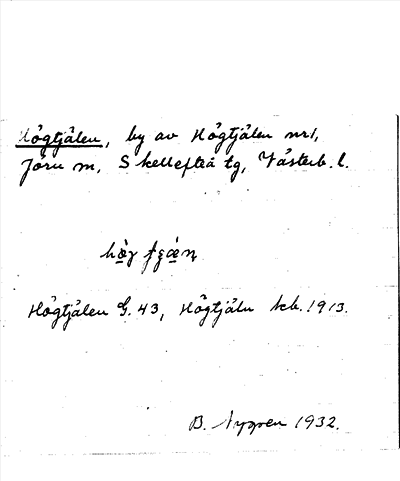 Högtjälen, by av Högtjälen nr 1,
Jörn m, Skellefteå tg, Västerb. l.
Högtjälen G. 43, Högtjäln kb. 1913.
B. Nygren 1932.